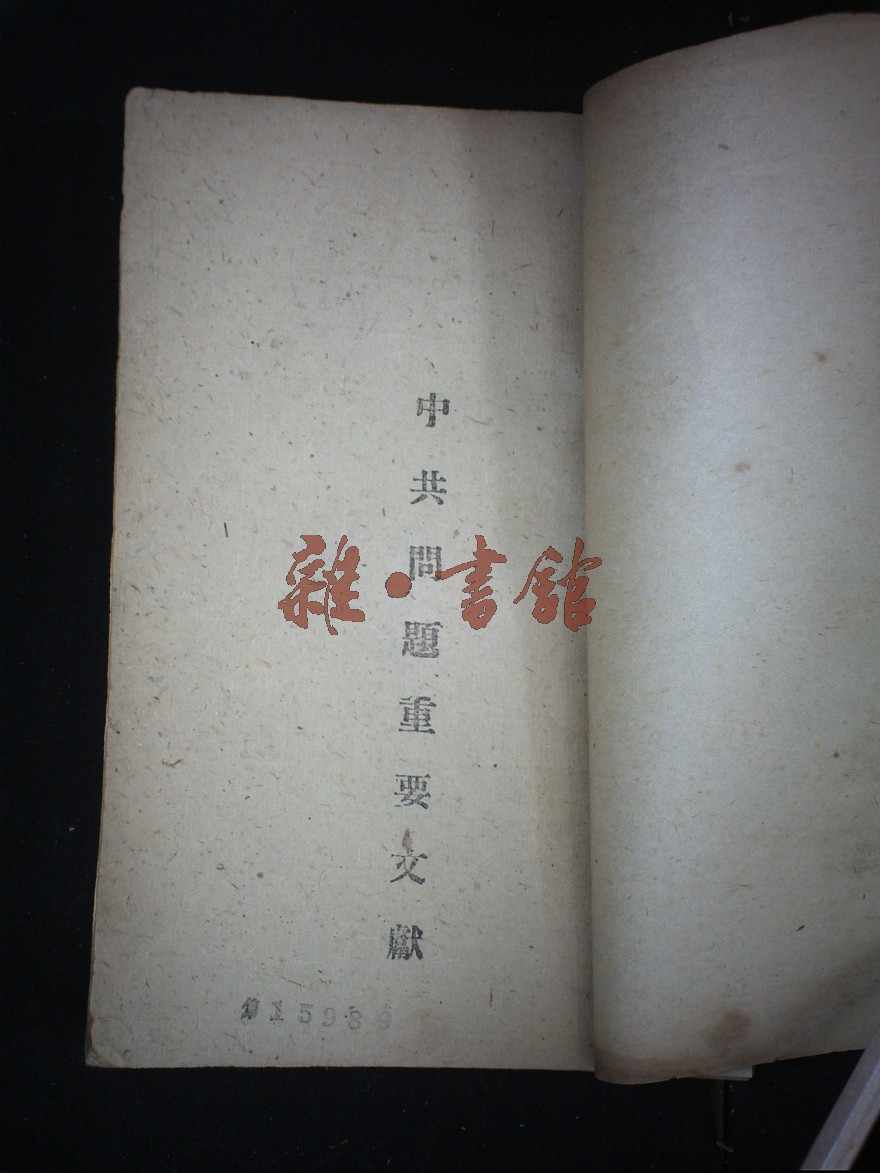 中共問題重要文獻
雜·書館
15989